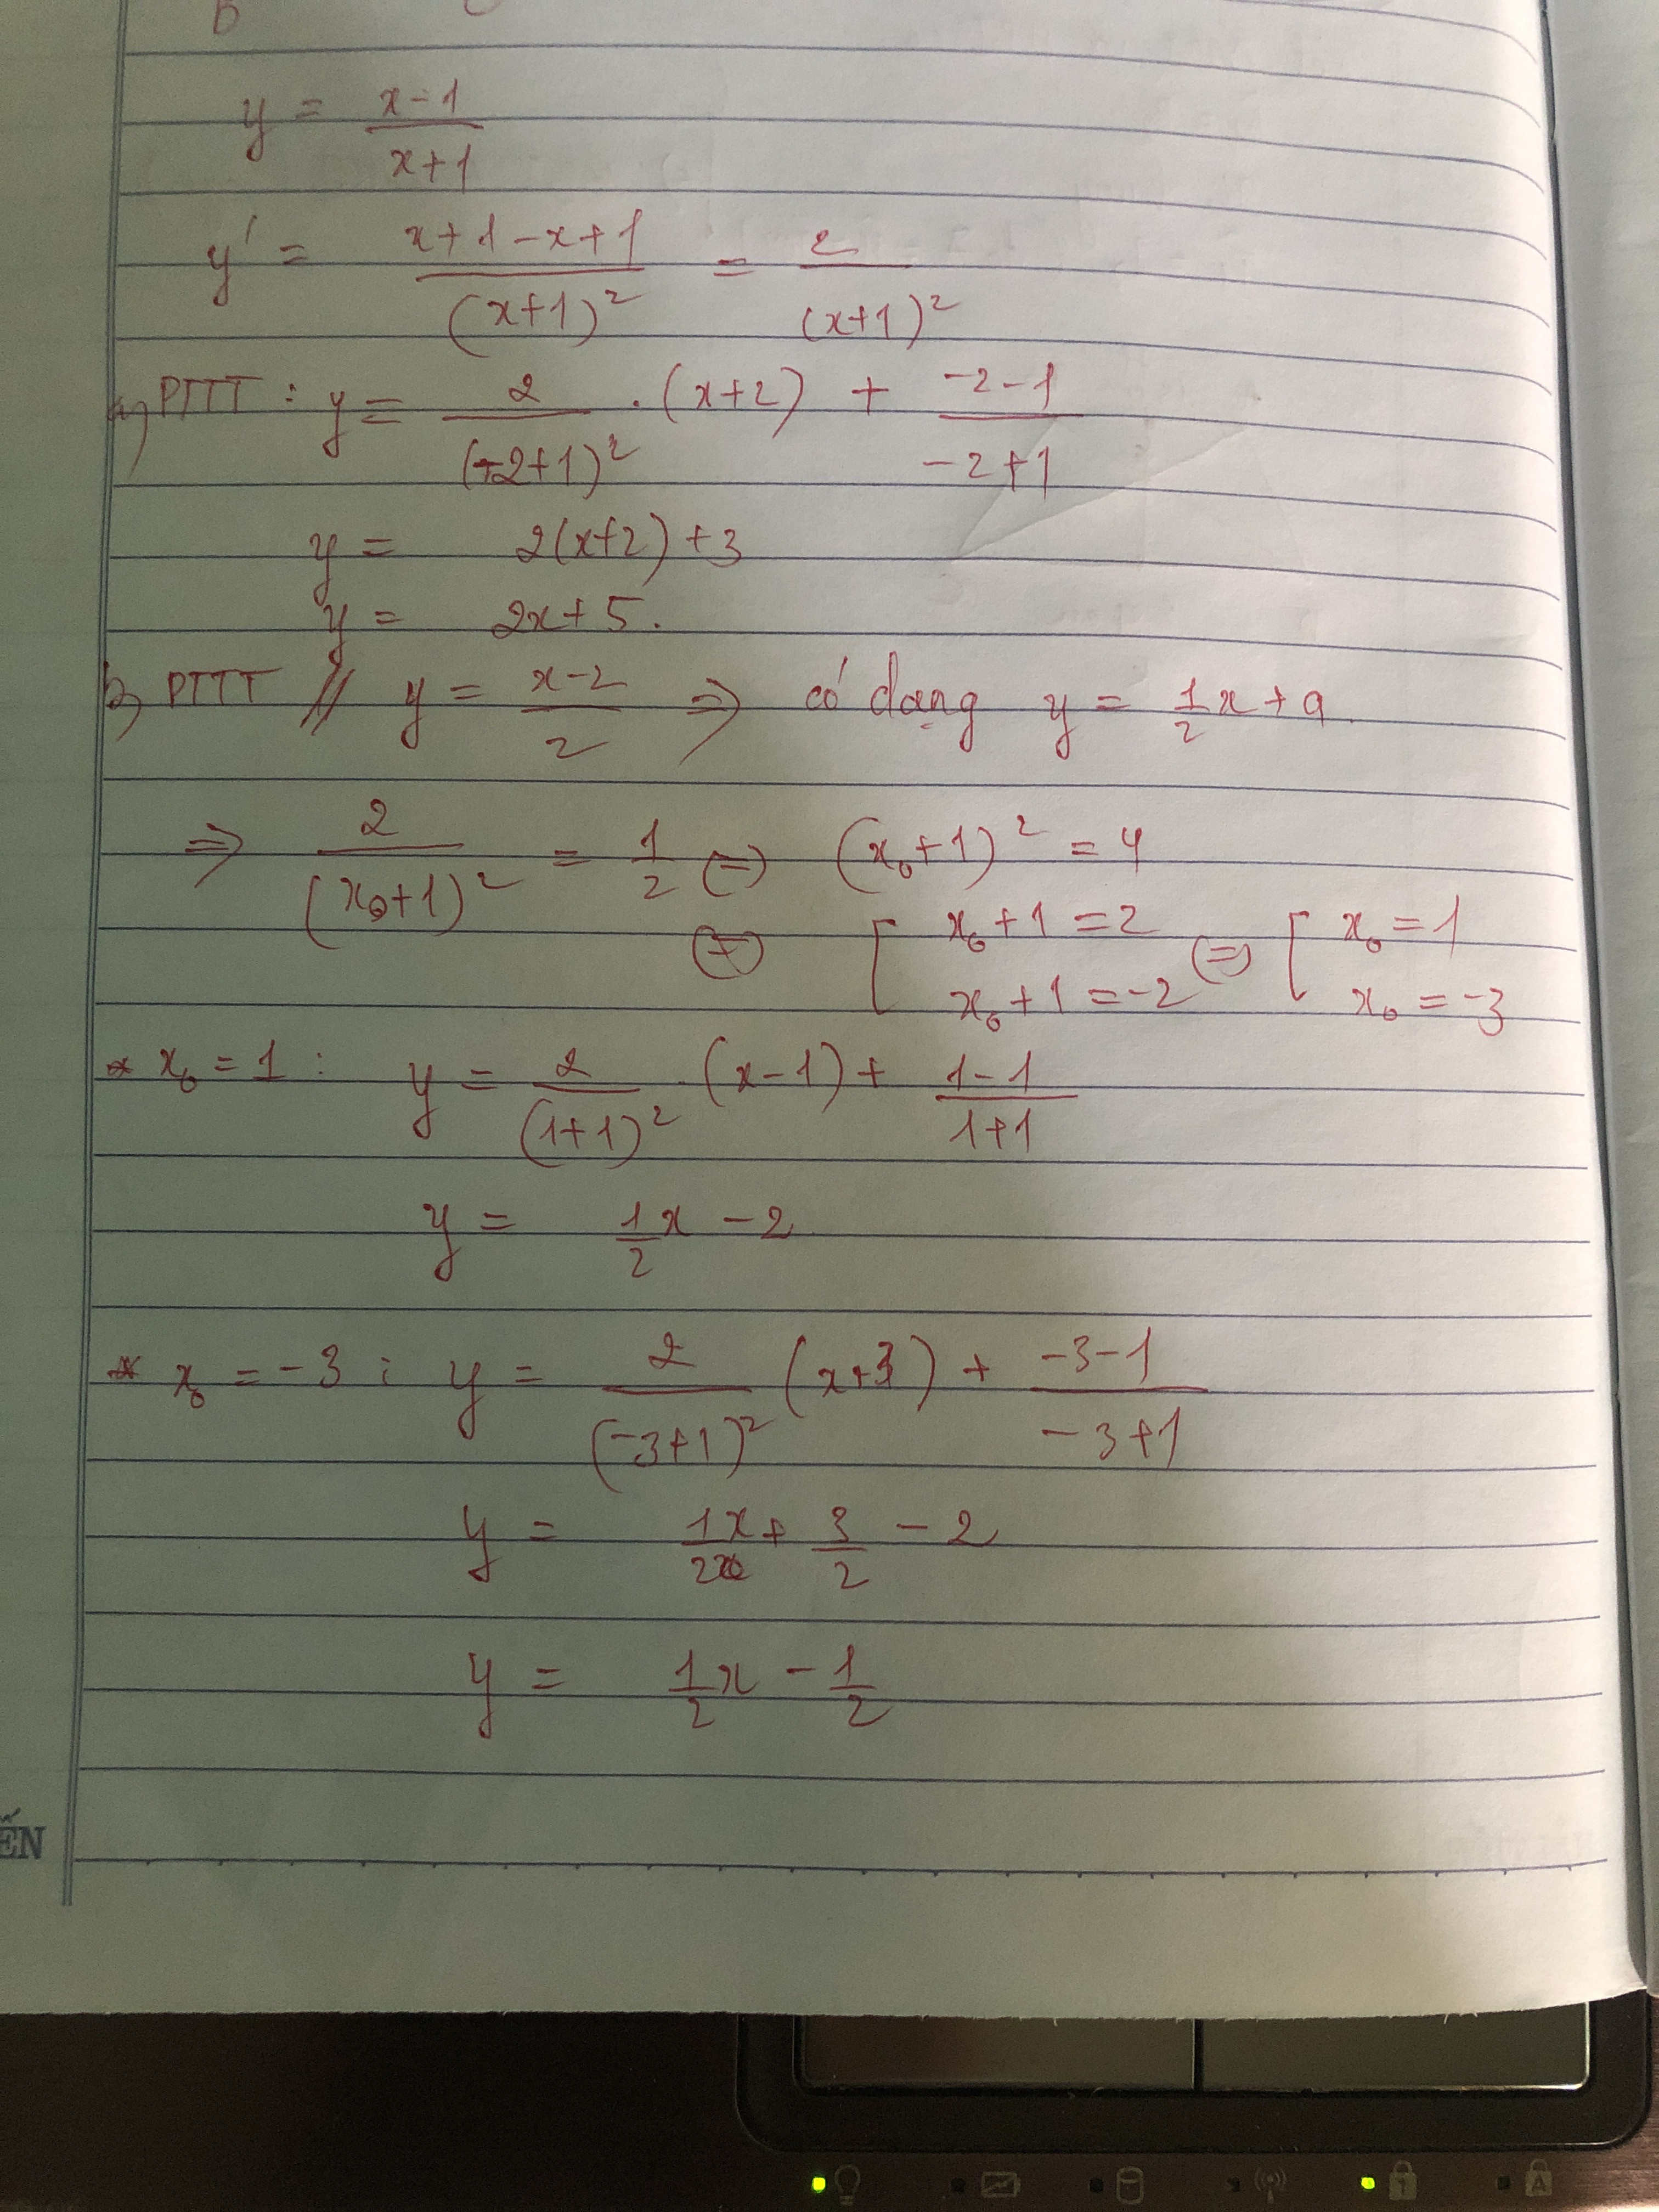 y = \frac{x-1}{x+1}
y' = \frac{x+1-x+1}{(x+1)^2} = \frac{2}{(x+1)^2}
a) PTTT : y = \frac{2}{(-2+1)^2} . (x+2) + \frac{-2-1}{-2+1}
y = 2(x+2) + 3
y = 2x + 5.
b) PTTT // y = \frac{x-2}{2} => có dạng y = \frac{1}{2}x + a
=> \frac{2}{(x_0+1)^2} = \frac{1}{2} (=) (x_0+1)^2 = 4
(=) [ x_0 + 1 = 2 (=) [ x_0 = 1
x_0 + 1 = -2 x_0 = -3
* x_0 = 1 : y = \frac{2}{(1+1)^2} . (x-1) + \frac{1-1}{1+1}
y = \frac{1}{2}x - 2
* x_0 = -3 : y = \frac{2}{(-3+1)^2} (x+3) + \frac{-3-1}{-3+1}
y = \frac{1x}{2} + \frac{3}{2} - 2
y = \frac{1}{2}x - \frac{1}{2}
ẾN